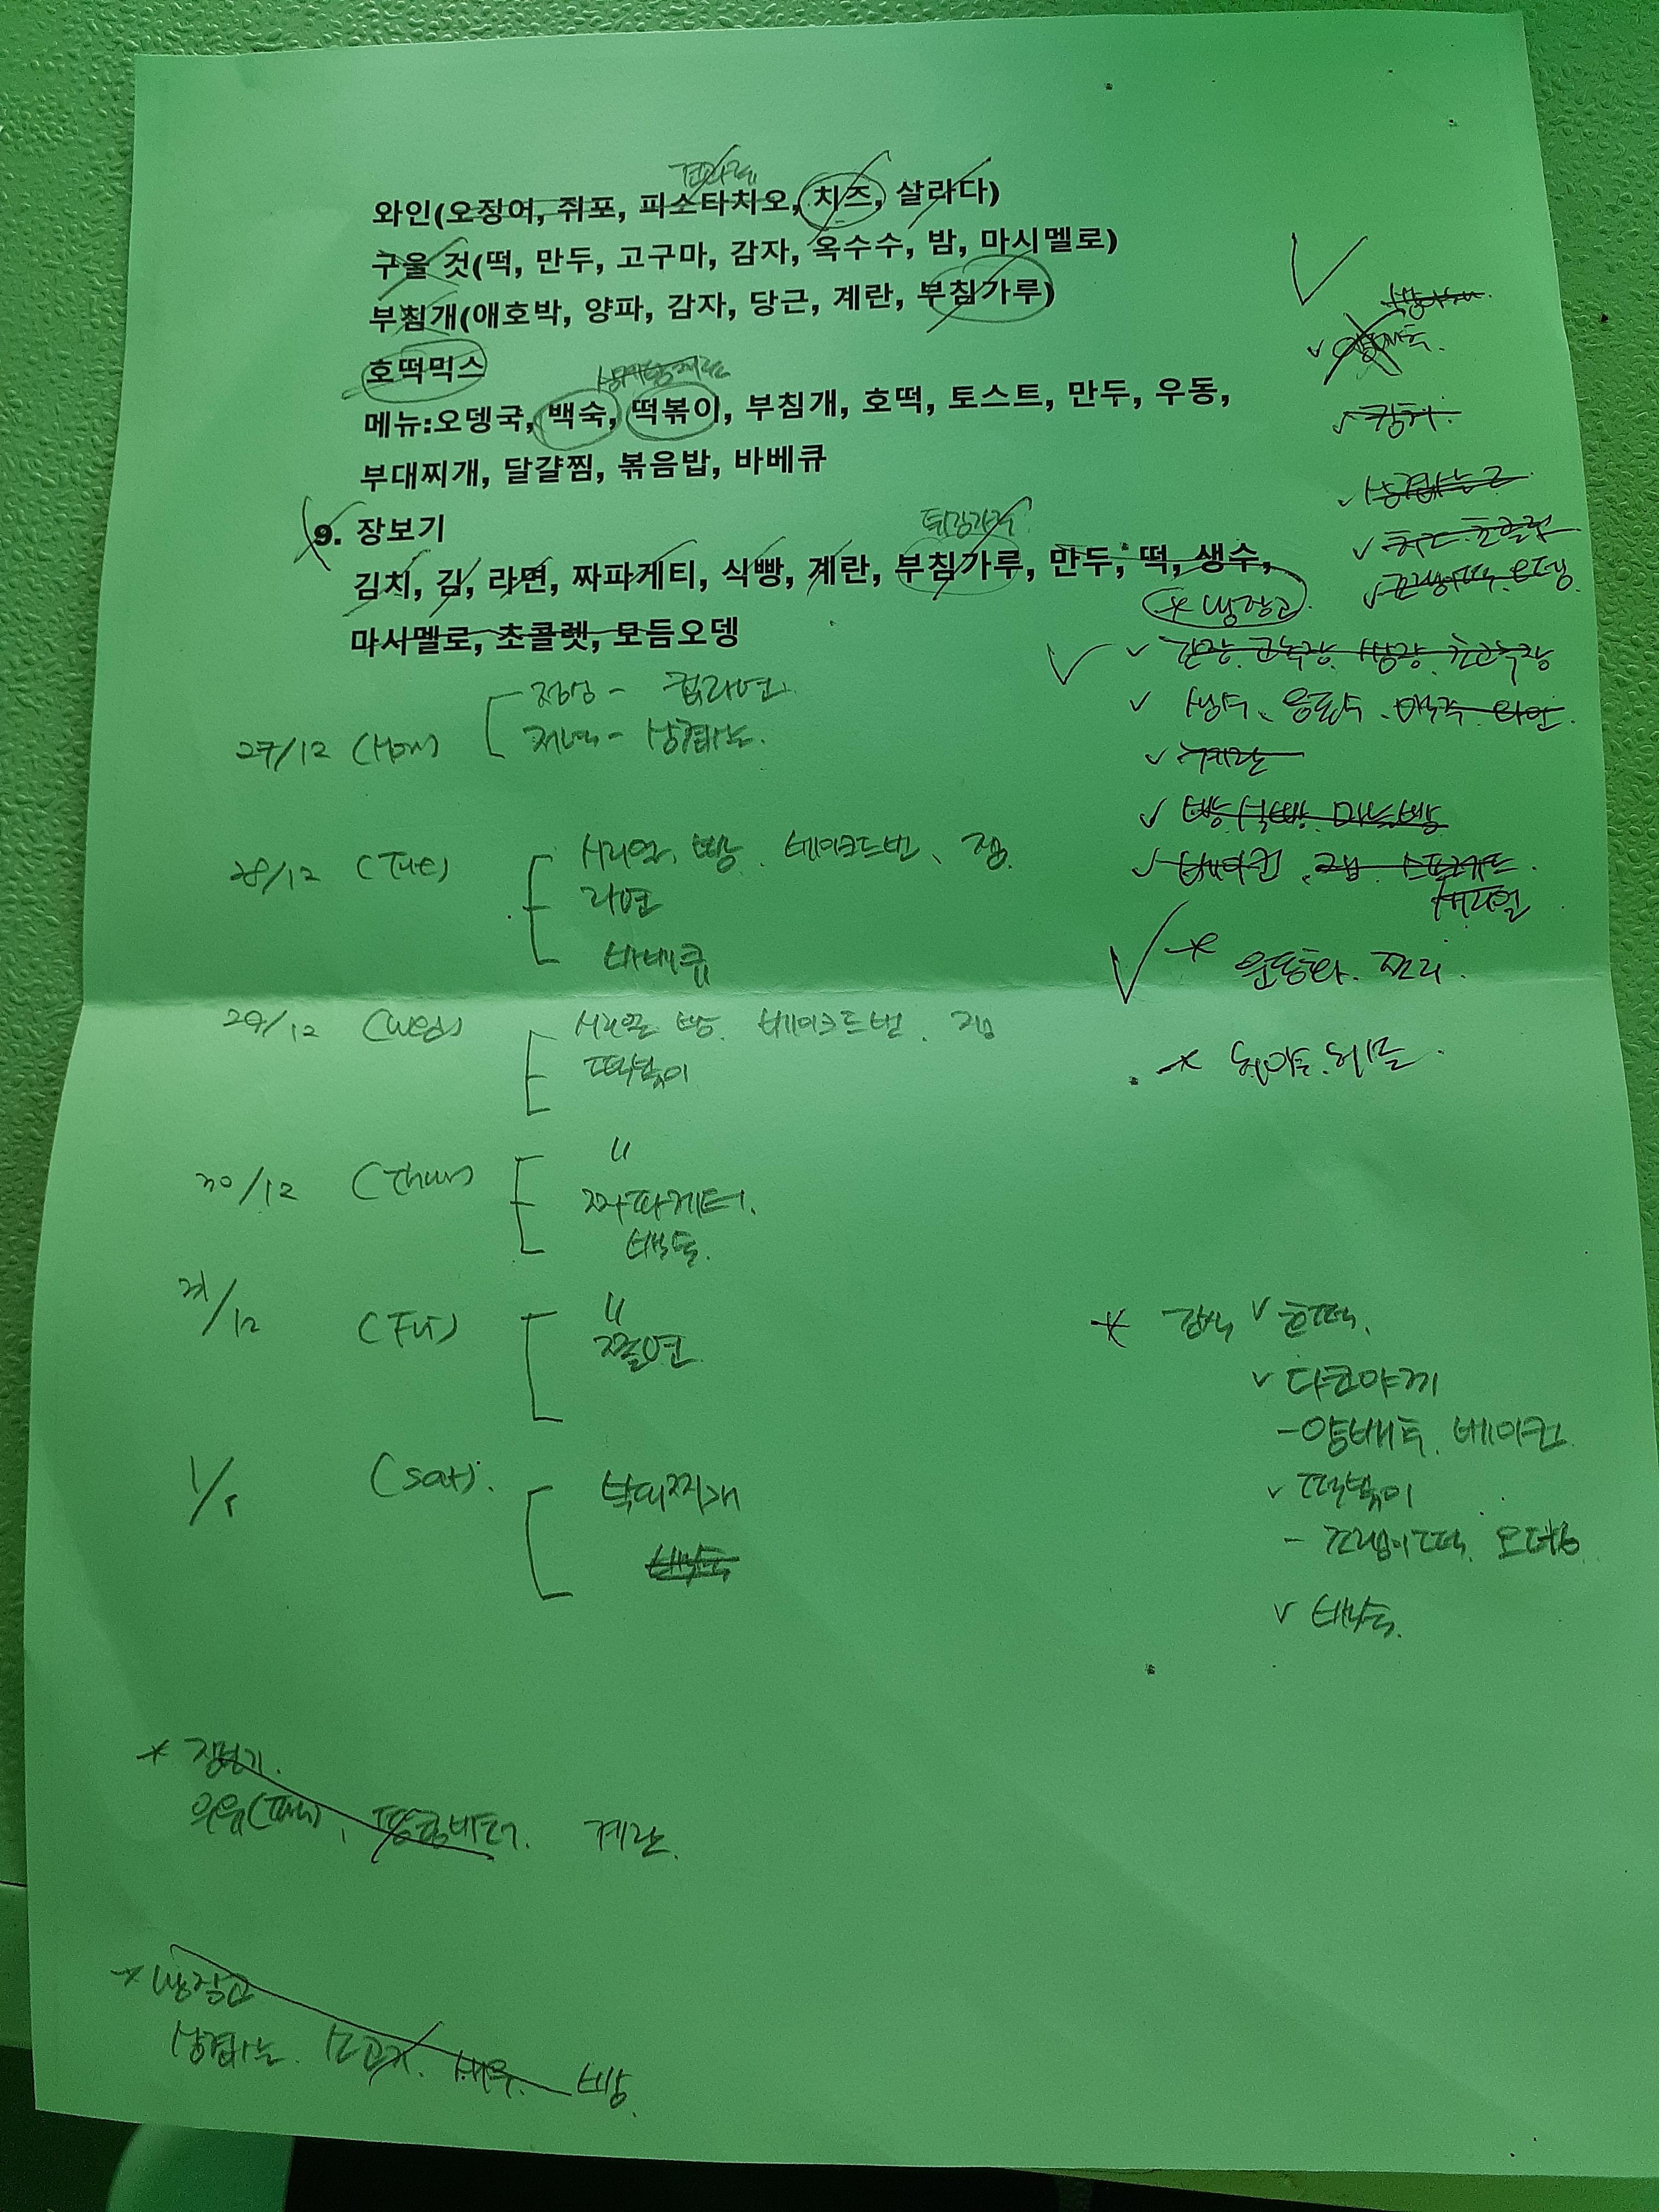 와인(오징어, 쥐포, 피스타치오, 치즈, 살라다)
구울 것(떡, 만두, 고구마, 감자, 옥수수, 밤, 마시멜로)
부침개(애호박, 양파, 감자, 당근, 계란, 부침가루)
호떡믹스
메뉴:오뎅국, 백숙, 떡볶이, 부침개, 호떡, 토스트, 만두, 우동,
부대찌개, 달걀찜, 볶음밥, 바베큐
9. 장보기
튀김가루
김치, 김, 라면, 짜파게티, 식빵, 계란, 부침가루, 만두, 떡, 생수,
마시멜로, 초콜렛, 모듬오뎅
* 냉장고
27/12 (Mon) 점심 - 컵라면
저녁 - 삼겹살
28/12 (Tue) 시리얼, 빵, 베이크드빈, 잼
라면
바베큐
29/12 (Wed) 시리얼 빵, 베이크드빈, 잼
떡볶이
30/12 (Thur) "
짜파게티
백숙
31/12 (Fri) "
쫄면
1/1 (Sat) 부대찌개
백숙
김치
삼겹살
간장, 고추장, 쌈장, 초고추장
생수, 음료수, 맥주, 와인
계란
빵, 식빵, 마늘빵
베이컨, 스프레드
시리얼
* 운동화, 쪼리
* 간식 v 호떡
v 다코야끼
- 양배추, 베이컨
v 떡볶이
- 떡, 오뎅
v 백숙
* 장보기
우유, 땅콩버터, 계란
* 냉장고
삼겹살, 소고기, 새우, 빵